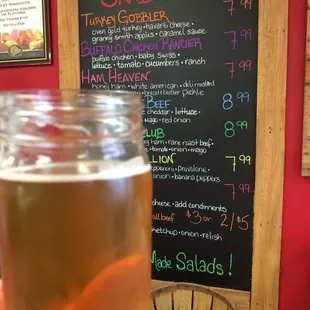 Turkey Gobbler 7.99
oven gold turkey • havarti cheese
granny smith apples • caramel sauce
Buffalo Chicken Rancher 7.99
buffalo chicken • baby swiss
lettuce • tomato • cucumbers • ranch
Ham Heaven 7.99
honey ham • white american • deli mustard
butter pickle
Beef 8.99
cheddar • lettuce
mayo • red onion
Club 8.99
ham • rare roast beef
tomato • onion • mayo
llion 7.99
pepperoni • provolone
onion • banana peppers
7.99
cheese • add condiments
all beef $3 or 2/$5
ketchup • onion • relish
Made Salads!